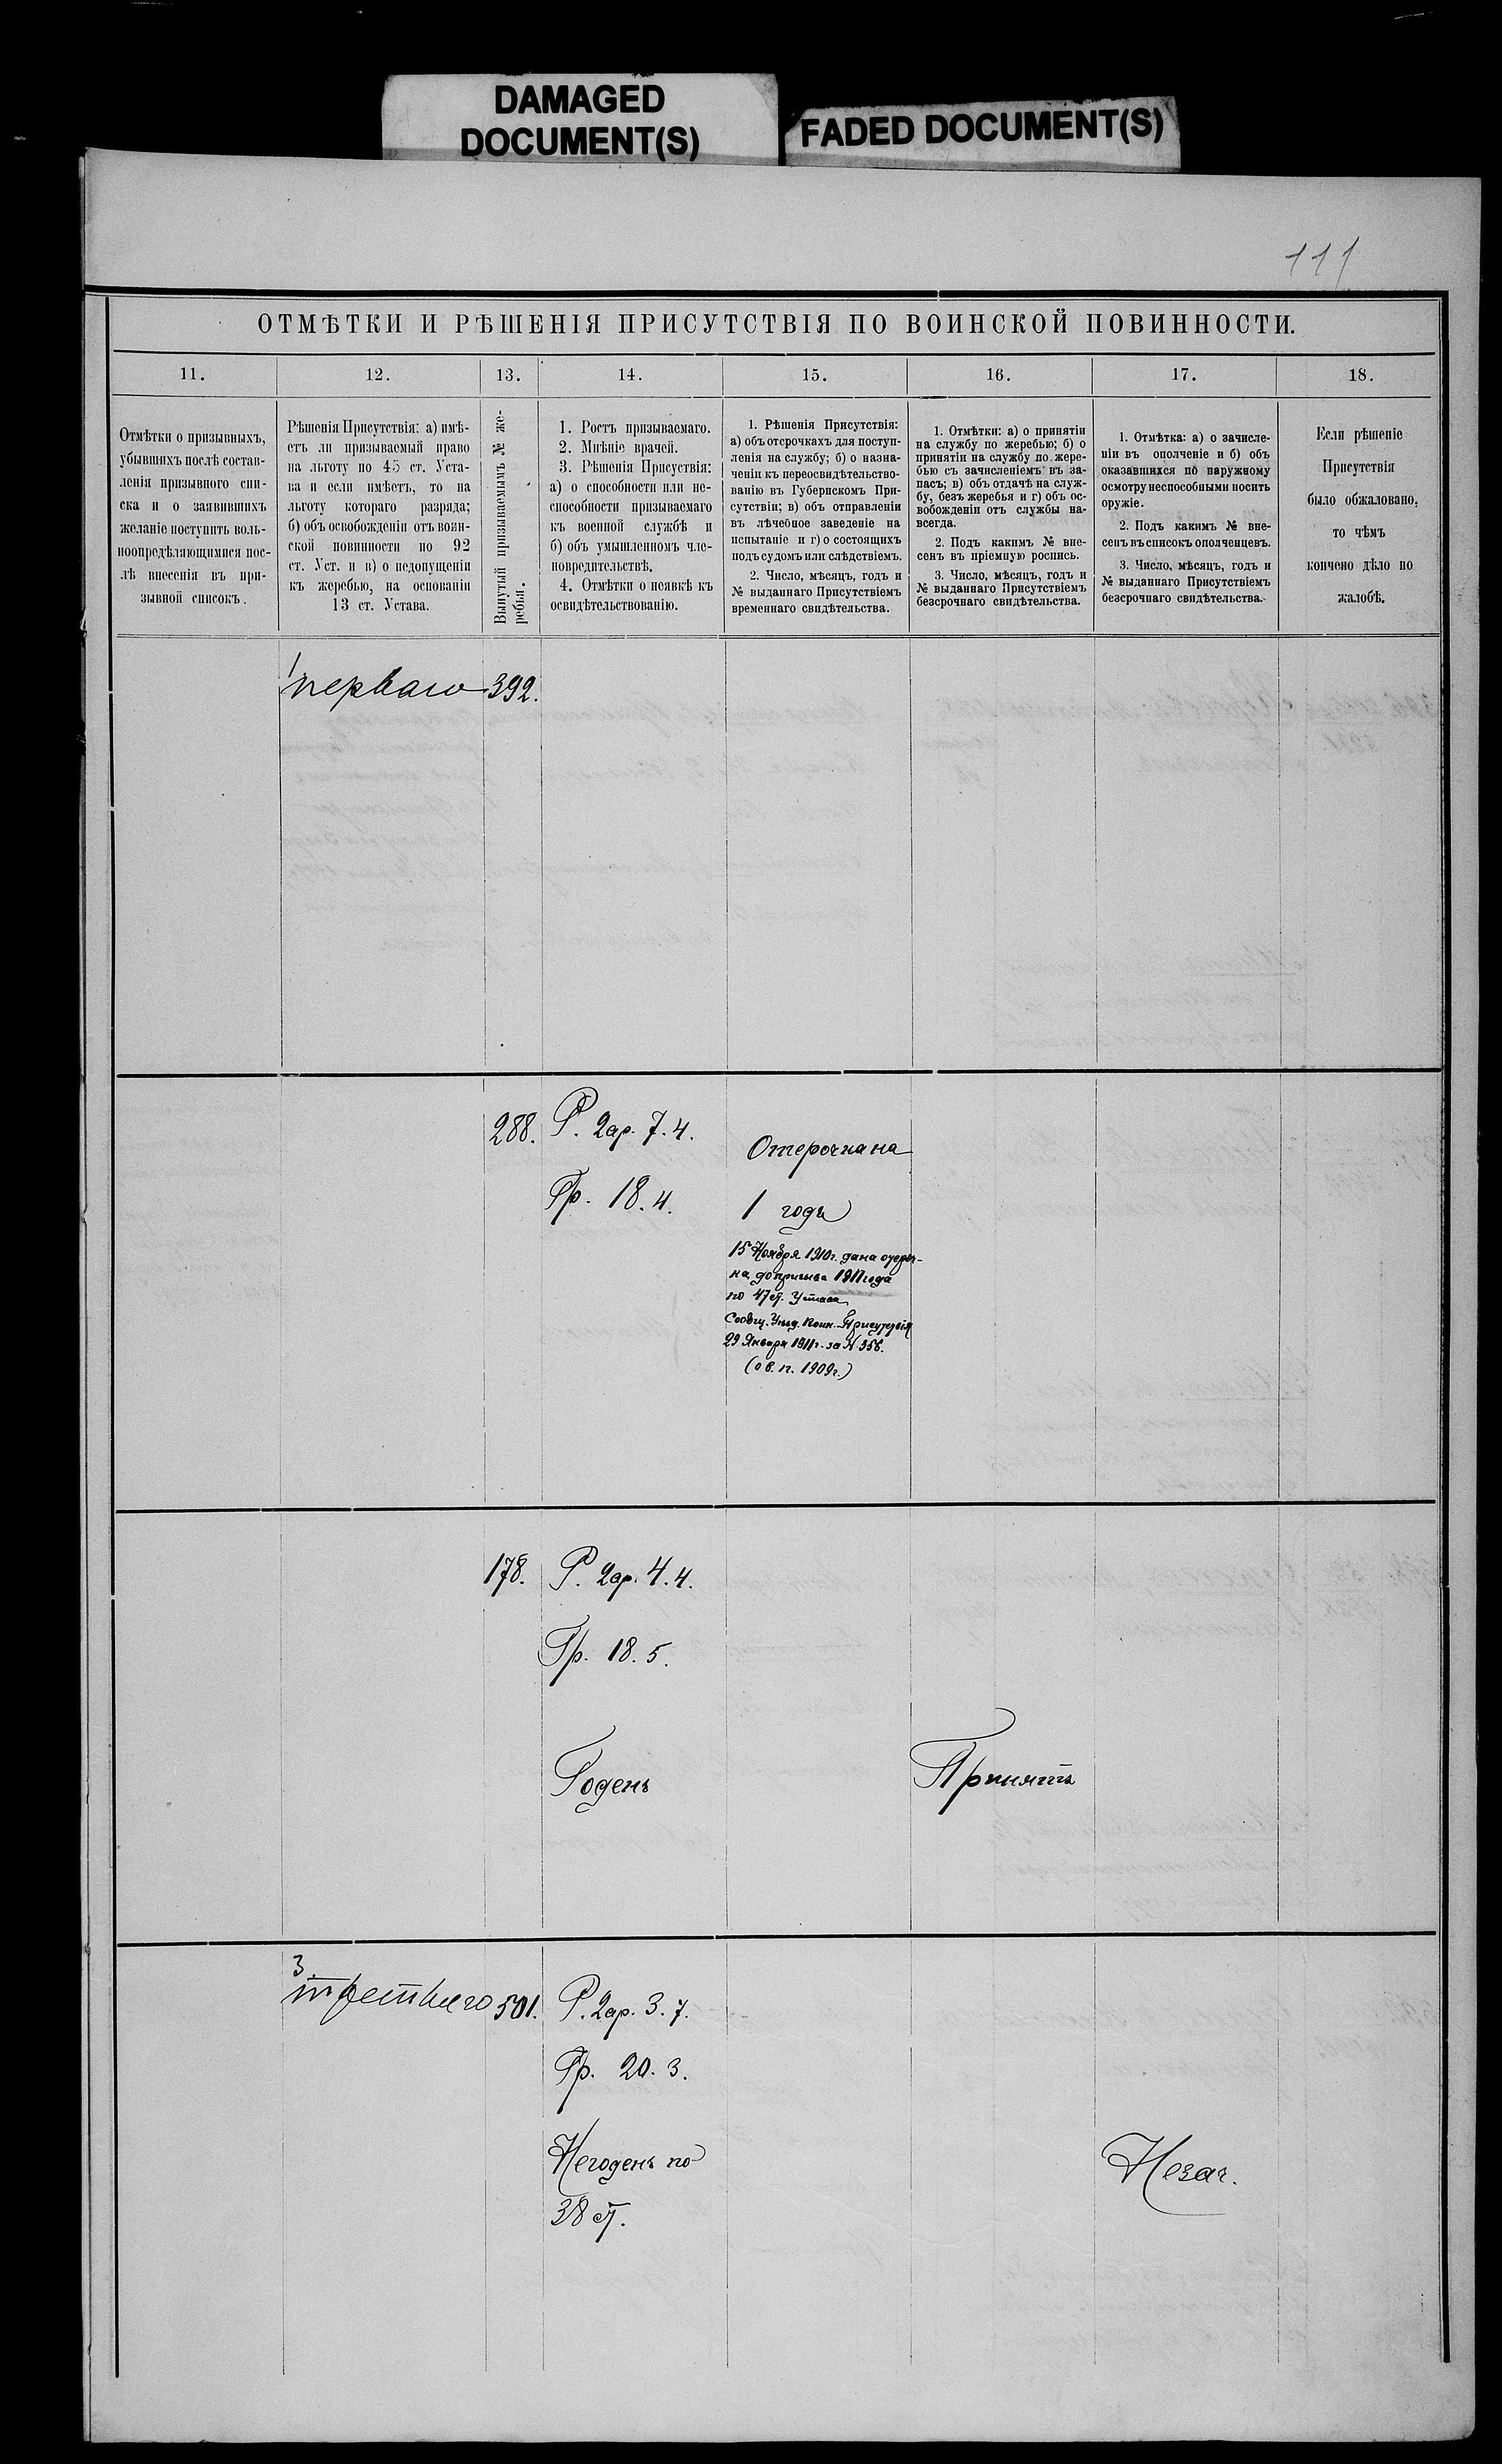 DAMAGED
DOCUMENT(S)
FADED DOCUMENT(S)
111
ОТМѢТКИ И РѢШЕНІЯ ПРИСУТСТВІЯ ПО ВОИНСКОЙ ПОВИННОСТИ.
11.
12.
13.
14.
15.
16.
17.
18.
Отмѣтки о призывныхъ,
убывшихъ послѣ состав-
ленія призывного спи-
ска и о заявившихъ
желаніе поступить воль-
ноопредѣляющимися пос-
лѣ внесенія въ при-
зывной списокъ.
Рѣшенія Присутствія: а) имѣ-
етъ ли призываемый право
на льготу по 45 ст. Уста-
ва и если имѣетъ, то на
льготу котораго разряда;
б) объ освобожденіи отъ воин-
ской повинности по 92
ст. Уст. и в) о недопущеніи
къ жеребью, на основаніи
13 ст. Устава.
Вынутый призываемымъ № же-
ребья.
1. Ростъ призываемаго.
2. Мнѣніе врачей.
3. Рѣшенія Присуствія:
а) о способности или не-
способности призываемаго
къ военной службѣ и
б) объ умышленномъ чле-
новредительствѣ.
4. Отмѣтки о неявкѣ къ
освидѣтельствованію.
1. Рѣшенія Присутствія:
а) объ отсрочкахъ для поступ-
ленія на службу; б) о назна-
ченіи къ переосвидѣтельство-
ванію въ Губернскомъ При-
сутствіи; в) объ отправленіи
въ лѣчебное заведеніе на
испытаніе и г) о состоящихъ
подъ судомъ или слѣдствіемъ.
2. Число, мѣсяцъ, годъ и
№ выданнаго Присутствіемъ
временнаго свидѣтельства.
1. Отмѣтки: а) о принятіи
на службу по жеребью; б) о
принятіи на службу по жере-
бью съ зачисленіемъ въ за-
пасъ; в) объ отдачѣ на служ-
бу, безъ жеребья и г) объ ос-
вобожденіи отъ службы на-
всегда.
2. Подъ какимъ № вне-
сенъ въ пріемную роспись.
3. Число, мѣсяцъ, годъ и
№ выданнаго Присутствіемъ
безсрочнаго свидѣтельства.
1. Отмѣтка: а) о зачисле-
ніи въ ополченіе и б) объ
оказавшихся по наружному
осмотру неспособными носить
оружіе.
2. Подъ какимъ № вне-
сенъ въ списокъ ополченцевъ.
3. Число, мѣсяцъ, годъ и
№ выданнаго Присутствіемъ
безсрочнаго свидѣтельства.
Если рѣшеніе
Присутствія
было обжаловано,
то чѣмъ
кончено дѣло по
жалобѣ.
1
перваго 392.
288. Р. 2ар. 7.4.
Гр. 18.4.
Отсрочка на
1 годъ
15 Ноября 1910г. дана отсроч-
ка до призыва 1911 года
по 47 ст. Устава
Сообщ. Уѣзд. Воин. Присутствія
29 Января 1911г. за № 358.
(о в. п. 1909г.)
178. Р. 2ар. 4.4.
Гр. 18.5.
Годенъ
Принятъ
3
третьяго 501. Р. 2ар. 3.7.
Гр. 20.3.
Негоденъ по
38 ст.
Незач.